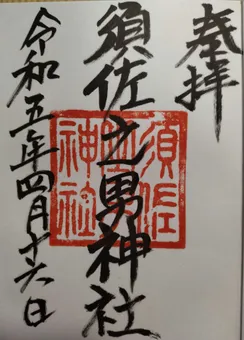 奉拝
須佐之男神社
令和五年四月十六日
須佐之男神社